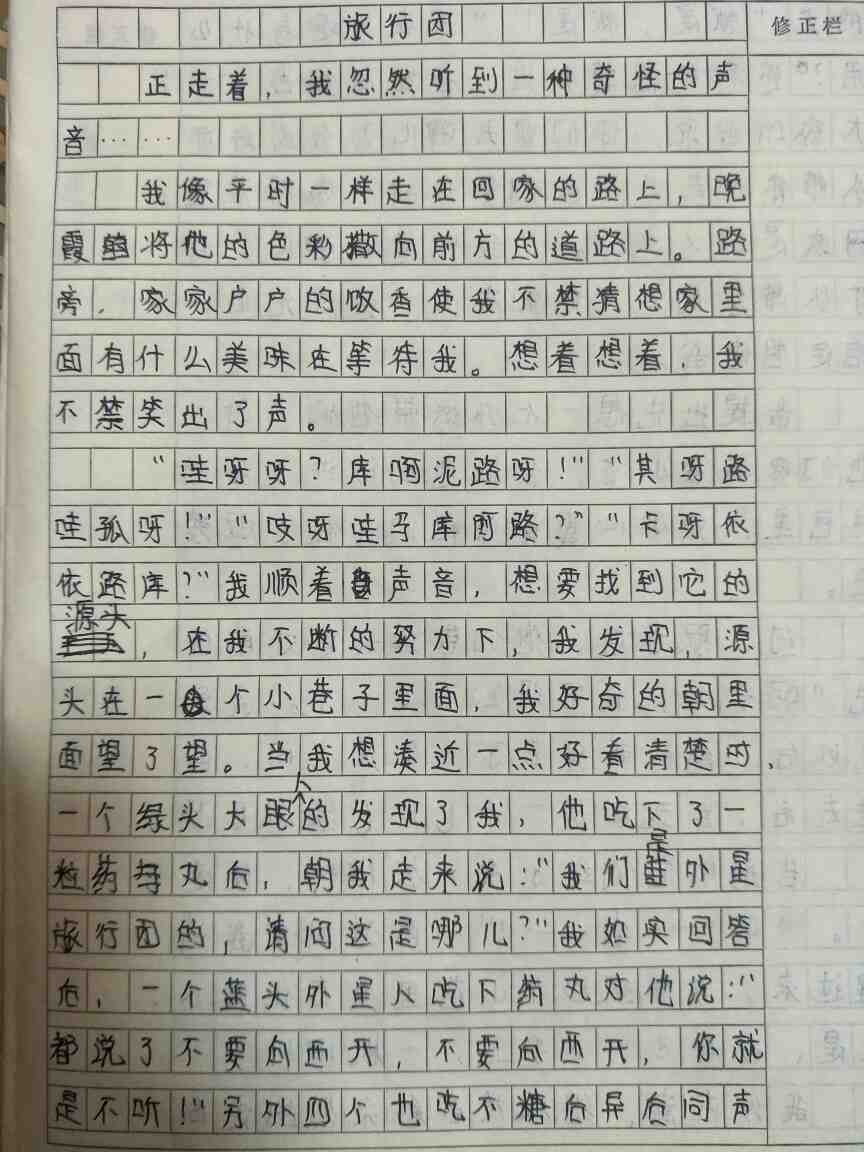 旅行团
修正栏
正走着，我忽然听到一种奇怪的声
音……
我像平时一样走在回家的路上，晚
霞将他的色彩撒向前方的道路上。路
旁，家家户户的饭香使我不禁猜想家里
面有什么美味在等待我。想着想着，我
不禁笑出了声。
“哇呀呀？库啊泥路呀！”“其呀路
哇孤呀！”“吱呀哇子库阿路？”“卡呀依
依路库？”我顺着声音，想要找到它的
源头，在我不断的努力下，我发现，源
头在一个小巷子里面，我好奇的朝里
面望了望。当我想凑近一点好看清楚时，
一个绿头大眼人的发现了我，他吃下了一
粒药丸后，朝我走来说：“我们是外星
旅行团的，请问这是哪儿？”我如实回答
后，一个蓝头外星人吃下药丸对他说：“
都说了不要向西开，不要向西开，你就
是不听！”另外四个也吃下糖后异口同声